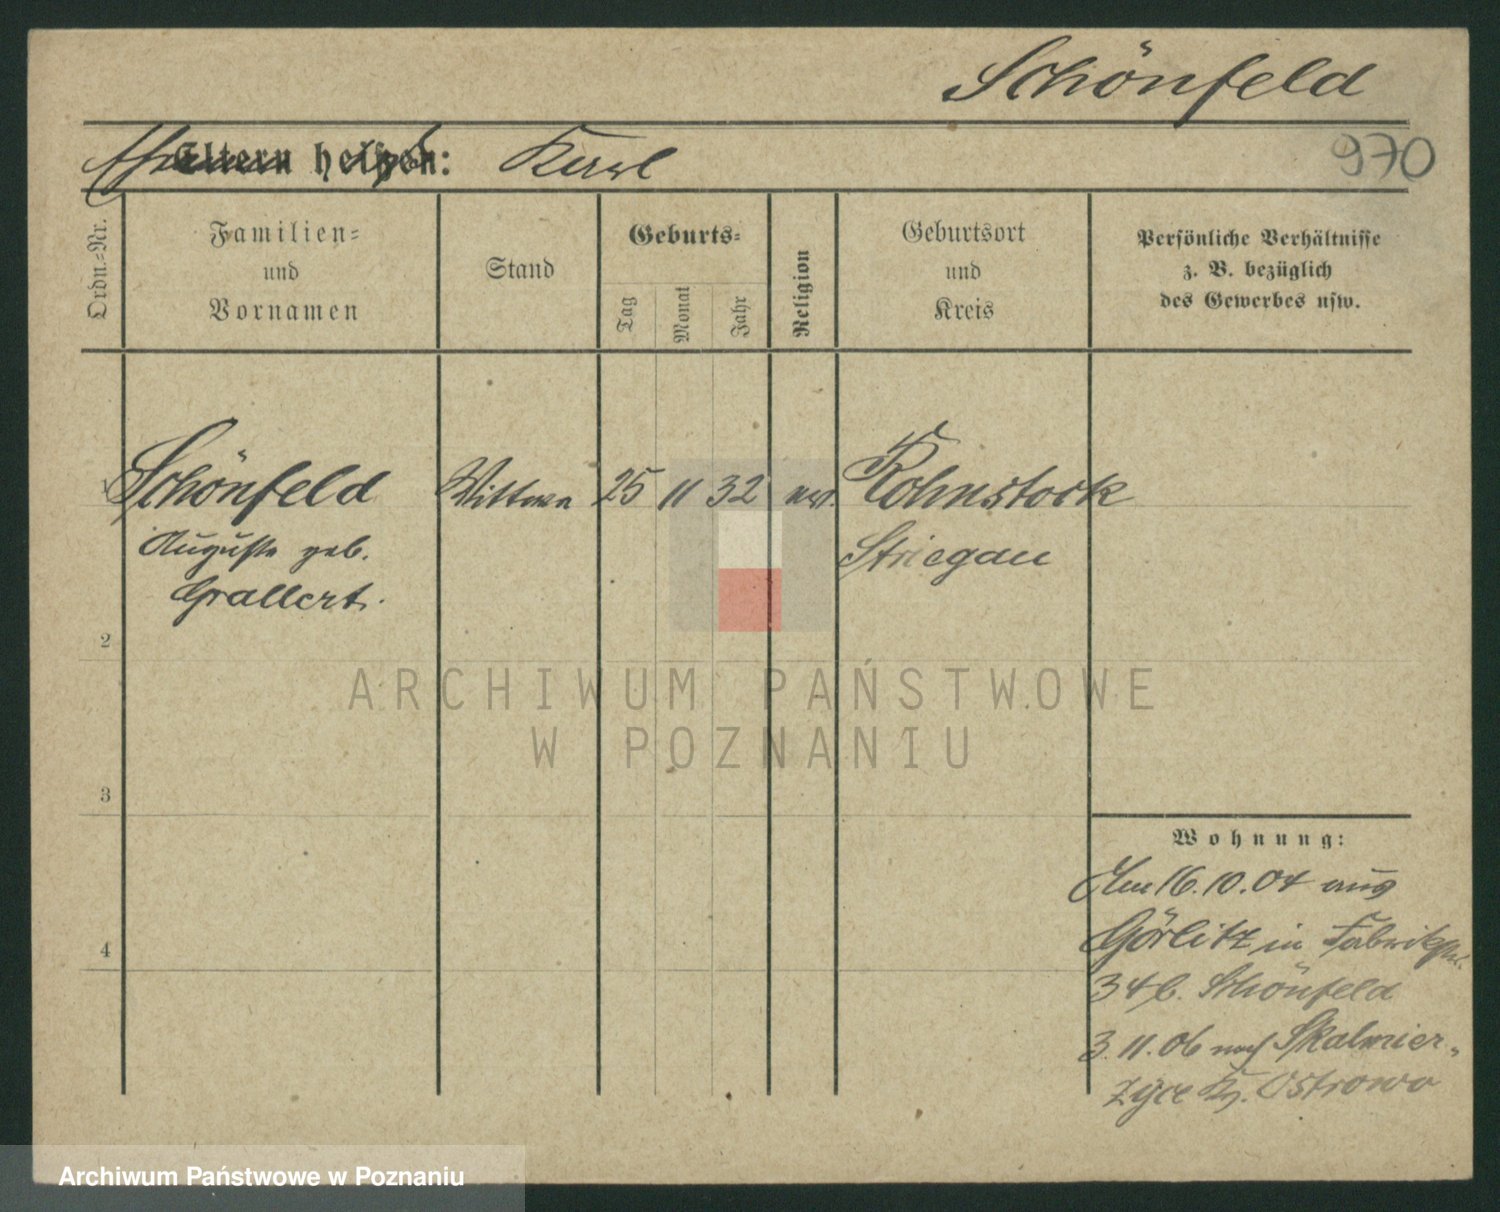 Schönfeld
970
Eltern heißen: Karl
Ordn.-Nr.
Familien-
und
Vornamen
Stand
Geburts-
Tag
Monat
Jahr
Religion
Geburtsort
und
Kreis
Persönliche Verhältnisse
z. B. bezüglich
des Gewerbes usw.
Schönfeld Wittwe 25 11 32 ev. Rohnstock
Auguste geb. Striegau
Grallert.
2
3
4
Wohnung:
Am 16.10.04 aus
Görlitz in Fabrikstr.
34 b. Schönfeld
3.11.06 nach Skalmier-
zyce Kr. Ostrowo
ARCHIWUM PAŃSTWOWE
W POZNANIU
Archiwum Państwowe w Poznaniu